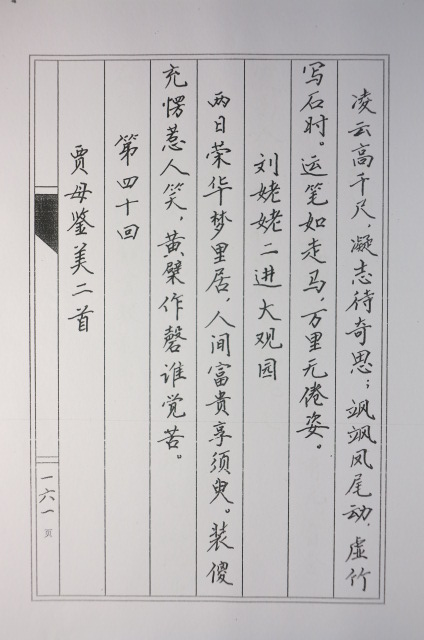 凌云高千尺，凝志待奇思；飒飒凤尾动，虚竹
写石时。运笔如走马，万里无倦姿。
刘姥姥二进大观园
两日荣华梦里居，人间富贵享须臾。装傻
充愣惹人笑，黄檗作磬谁觉苦。
第四十回
贾母鉴美二首
一六一页